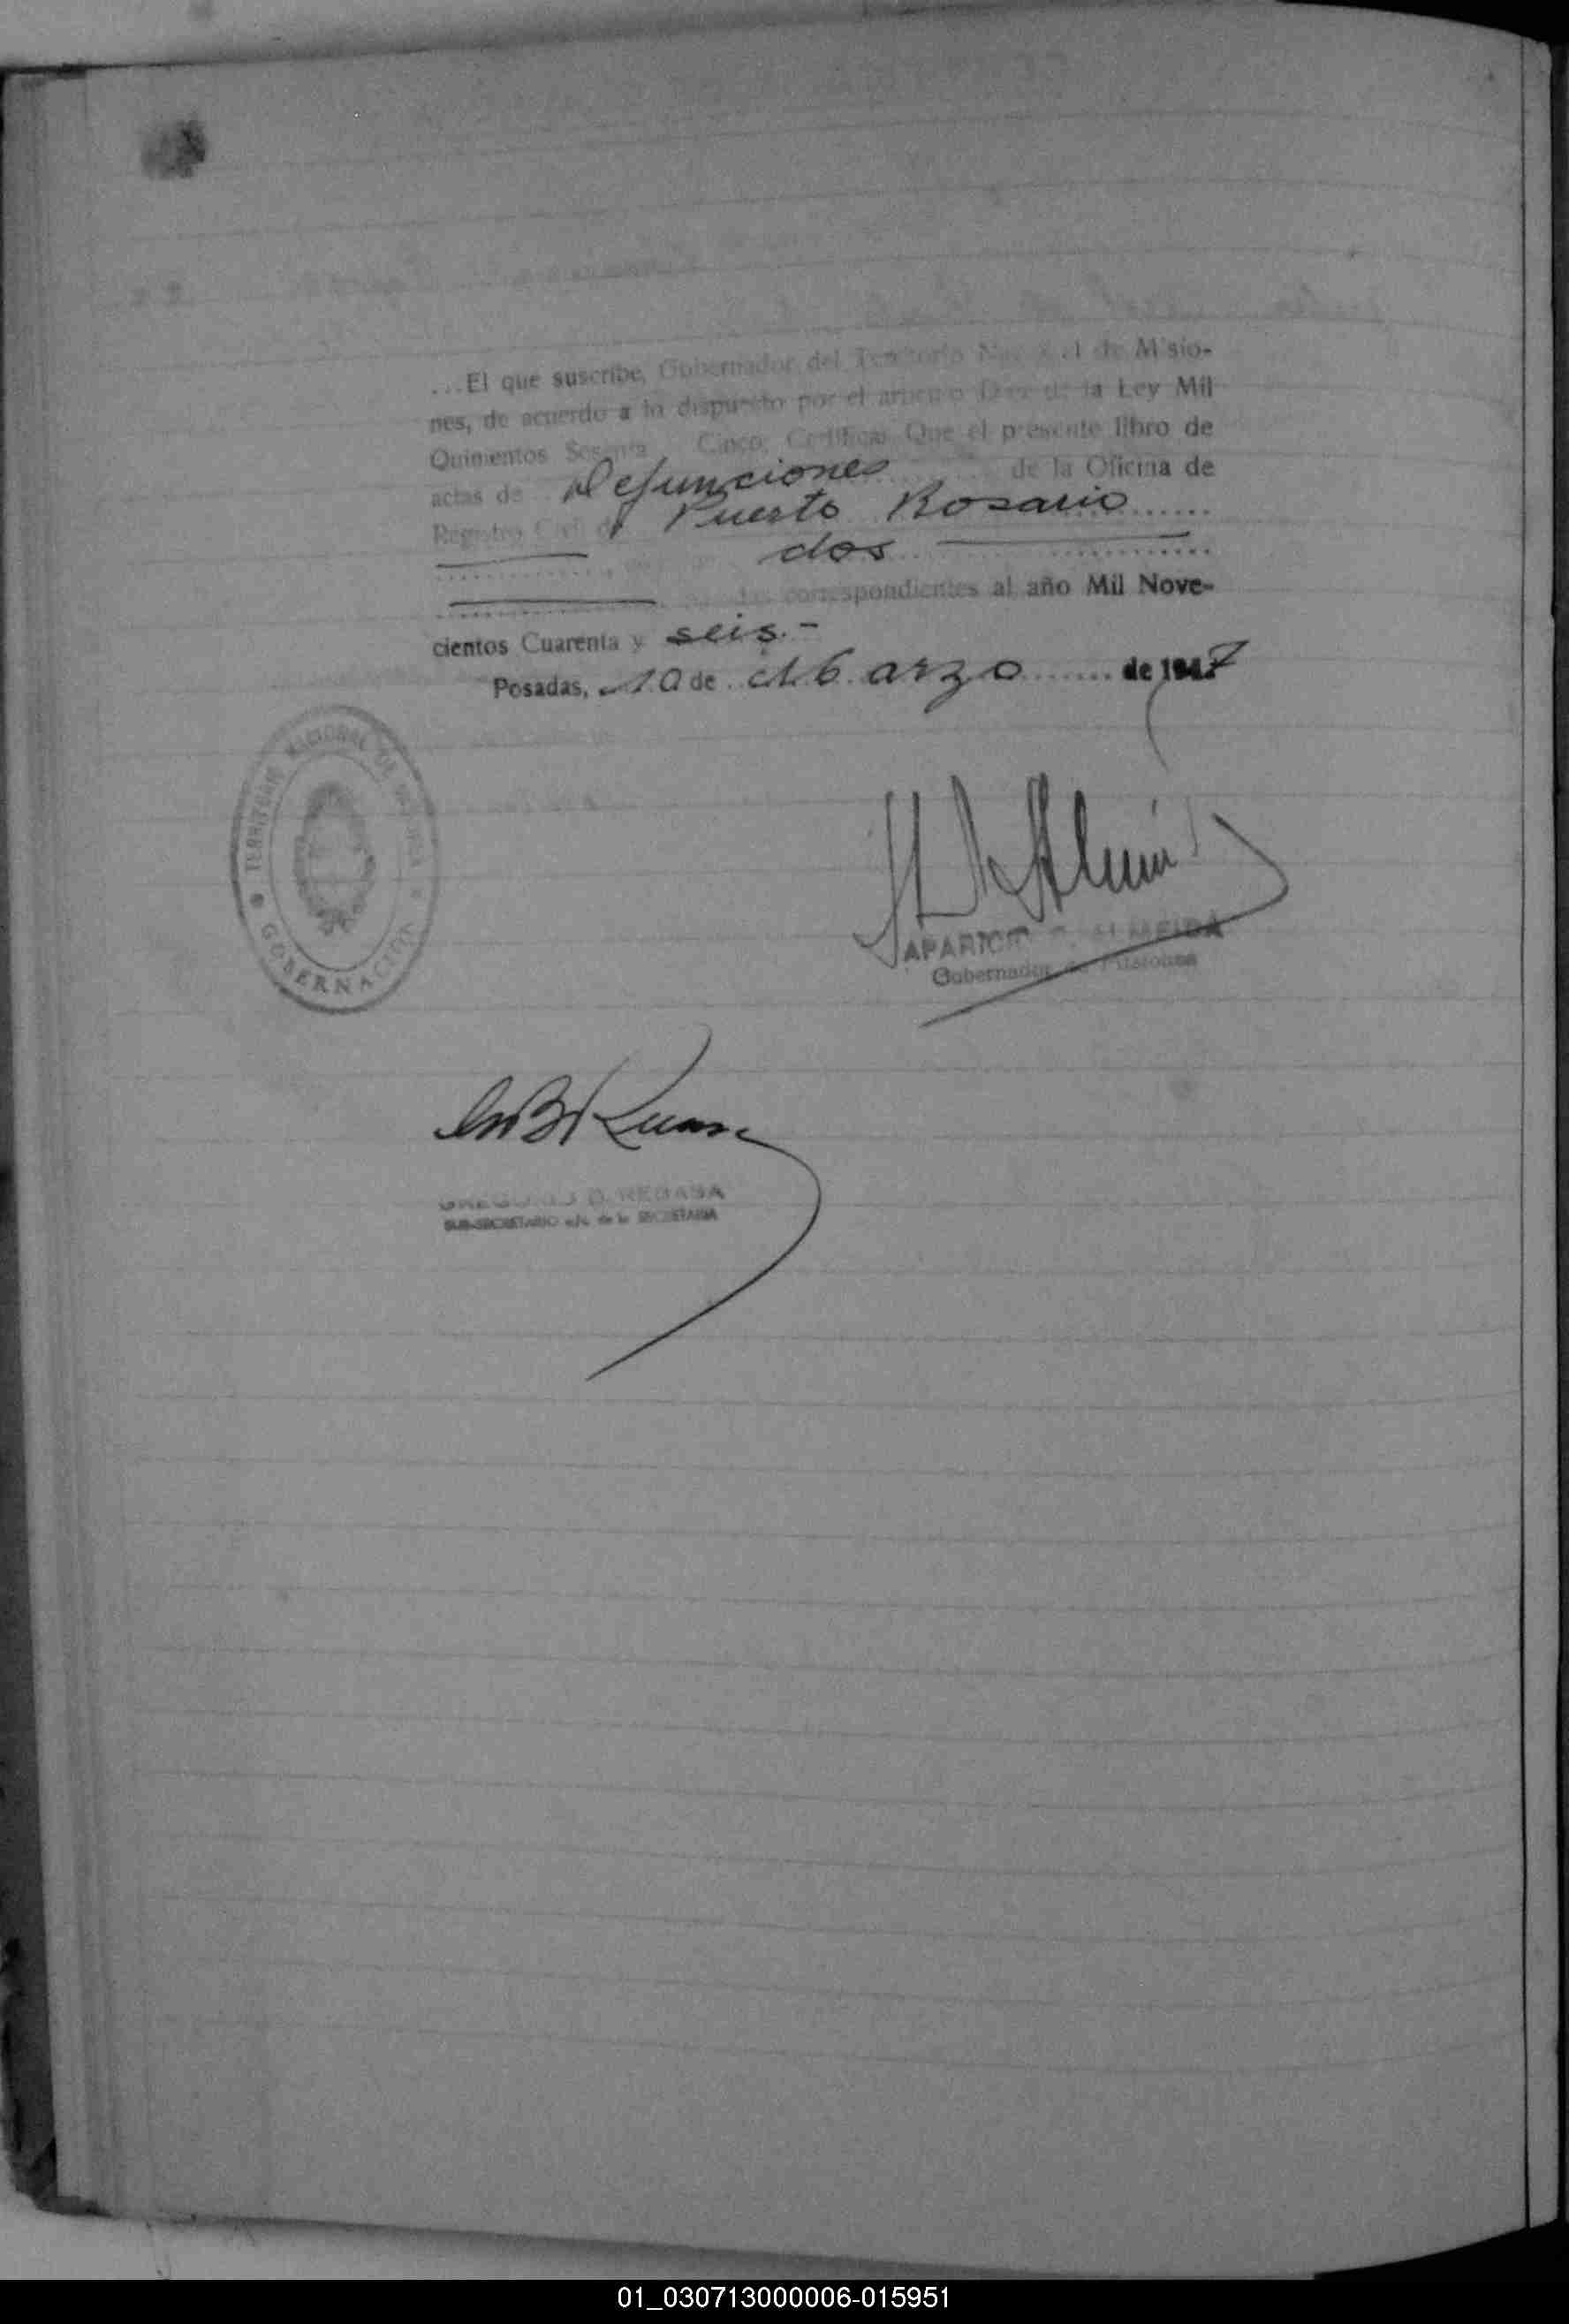 ...El que suscribe, Gobernador del Territorio Nacional de Misio-
nes, de acuerdo a lo dispuesto por el articulo Diez de la Ley Mil
Quinientos Sesenta Cinco, Certifica: Que el presente libro de
actas de Defunciones de la Oficina de
Registro Civil de Puerto Rosario
dos
correspondientes al año Mil Nove-
cientos Cuarenta y seis.-
Posadas, 10 de Marzo de 1947
TERRITORIO NACIONAL DE
GOBERNACION
APARICIO ALMEIDA
Gobernador de Misiones
GREGORIO B. REBASA
SUB-SECRETARIO a/c. de la SECRETARIA
01_030713000006-015951